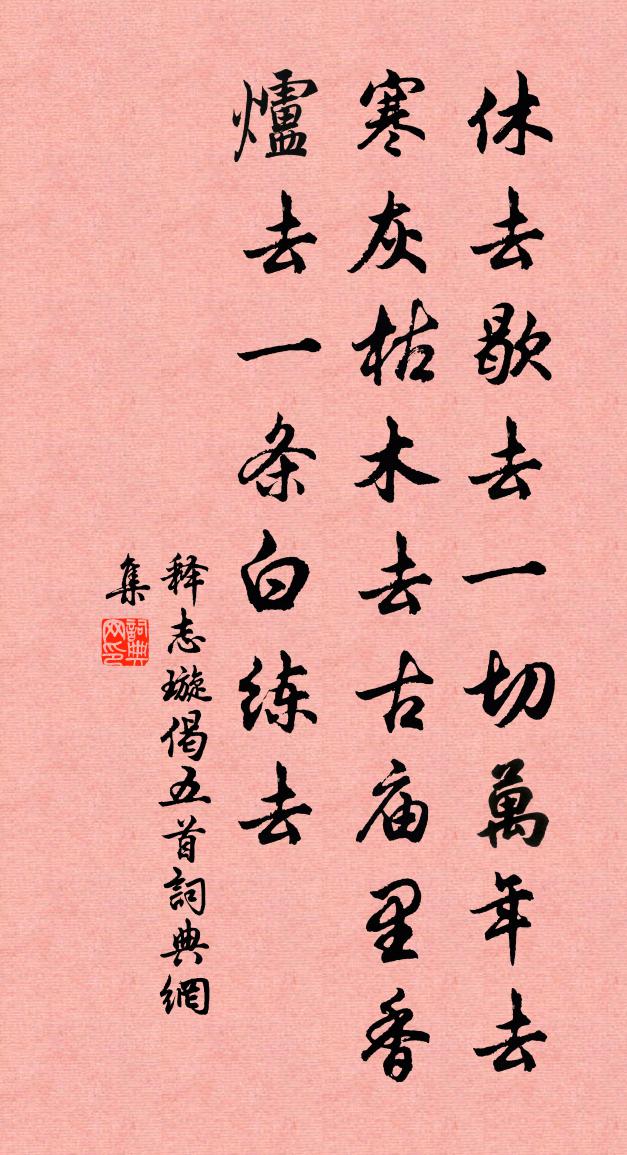 休去歇去一切萬年去
寒灰枯木去古庙里香
爐去一条白练去
释志璇偈五首詞典網
集
詞典
网印